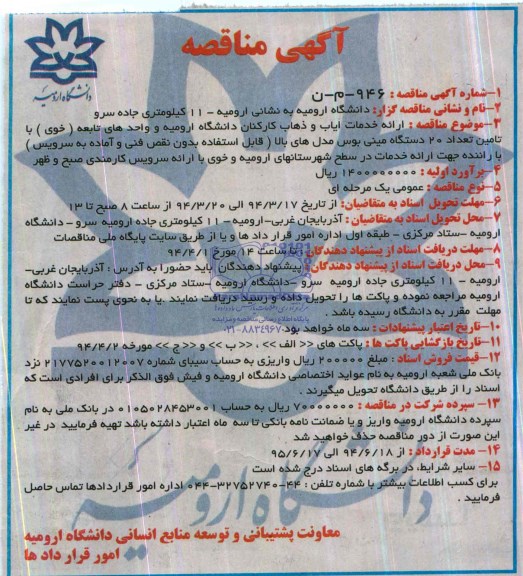 دانشگاه ارومیه
آگهی مناقصه
۱-شماره آگهی مناقصه : ۹۴۶-م-ن
۲-نام و نشانی مناقصه گزار: دانشگاه ارومیه به نشانی ارومیه - ۱۱ کیلومتری جاده سرو
۳-موضوع مناقصه : ارائه خدمات ایاب و ذهاب کارکنان دانشگاه ارومیه و واحد های تابعه ( خوی ) با
تامین تعداد ۲۰ دستگاه مینی بوس مدل های بالا ( قابل استفاده بدون نقص فنی و آماده به سرویس )
با راننده جهت ارائه خدمات در سطح شهرستانهای ارومیه و خوی با ارائه سرویس کارمندی صبح و ظهر
۴-برآورد اولیه : ۱۴۰۰۰۰۰۰۰۰ ریال
۵-نوع مناقصه : عمومی یک مرحله ای
۶-مهلت تحویل اسناد به متقاضیان: از تاریخ ۹۴/۳/۱۷ الی ۹۴/۳/۲۰ از ساعت ۸ صبح تا ۱۳
۷-محل تحویل اسناد به متقاضیان : آذربایجان غربی-ارومیه- ۱۱ کیلومتری جاده ارومیه سرو - دانشگاه
ارومیه -ستاد مرکزی - طبقه اول اداره امور قرار داد ها و یا از طریق سایت پایگاه ملی مناقصات
۸-مهلت دریافت اسناد از پیشنهاد دهندگان : ساعت ۱۴ مورخ ۹۴/۴/۱
۹-محل دریافت اسناد از پیشنهاد دهندگان: پیشنهاد دهندگان باید حضورا به آدرس : آذربایجان غربی-
ارومیه - ۱۱ کیلومتری جاده ارومیه سرو -دانشگاه ارومیه -ستاد مرکزی - دفتر حراست دانشگاه
ارومیه مراجعه نموده و پاکت ها را تحویل داده و رسید دریافت نمایند .یا به نحوی پست نمایند که تا
مهلت مقرر به دانشگاه رسیده باشد .
۱۰-تاریخ اعتبار پیشنهادات : سه ماه خواهد بود
۰۲۱-۸۸۳۴۹۶۷۰
۱۱-تاریخ بازگشایی پاکت ها : پاکت های << الف >> ، << ب >> و << ج >> مورخه ۹۴/۴/۲
۱۲-قیمت فروش اسناد : مبلغ ۲۰۰۰۰۰ ریال واریزی به حساب سیبای شماره ۲۱۷۷۵۲۰۰۱۲۰۰۷ نزد
بانک ملی شعبه ارومیه به نام عواید اختصاصی دانشگاه ارومیه و فیش فوق الذکر برای افرادی است که
اسناد را از طریق دانشگاه تحویل میگیرند .
۱۳- سپرده شرکت در مناقصه : ۷۰۰۰۰۰۰۰ ریال به حساب ۰۱۰۵۰۲۸۴۵۳۰۰۱ در بانک ملی به نام
سپرده دانشگاه ارومیه واریز و یا ضمانت نامه بانکی تا سه ماه اعتبار داشته باشد تهیه فرمایید در غیر
این صورت از دور مناقصه حذف خواهید شد
۱۴- مدت قرارداد : از ۹۴/۶/۱۸ الی ۹۵/۶/۱۷
۱۵- سایر شرایط، در برگه های اسناد درج شده است
برای کسب اطلاعات بیشتر با شماره تلفن : ۴۴-۰۴۴-۳۲۷۵۲۷۴۰ اداره امور قراردادها تماس حاصل
فرمایید .
معاونت پشتیبانی و توسعه منابع انسانی دانشگاه ارومیه
امور قرار داد ها